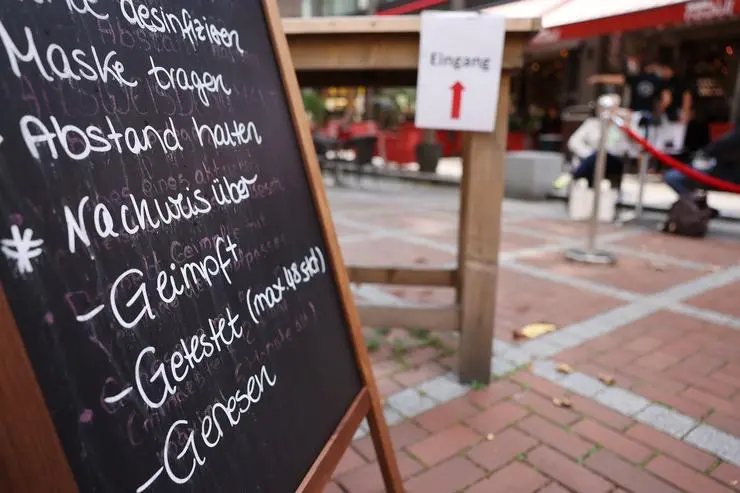 desinfizieren
Maske tragen
Abstand halten
* Nachwis über
- Geimpft
- Getestet (max. 48 std)
- Genesen
Eingang